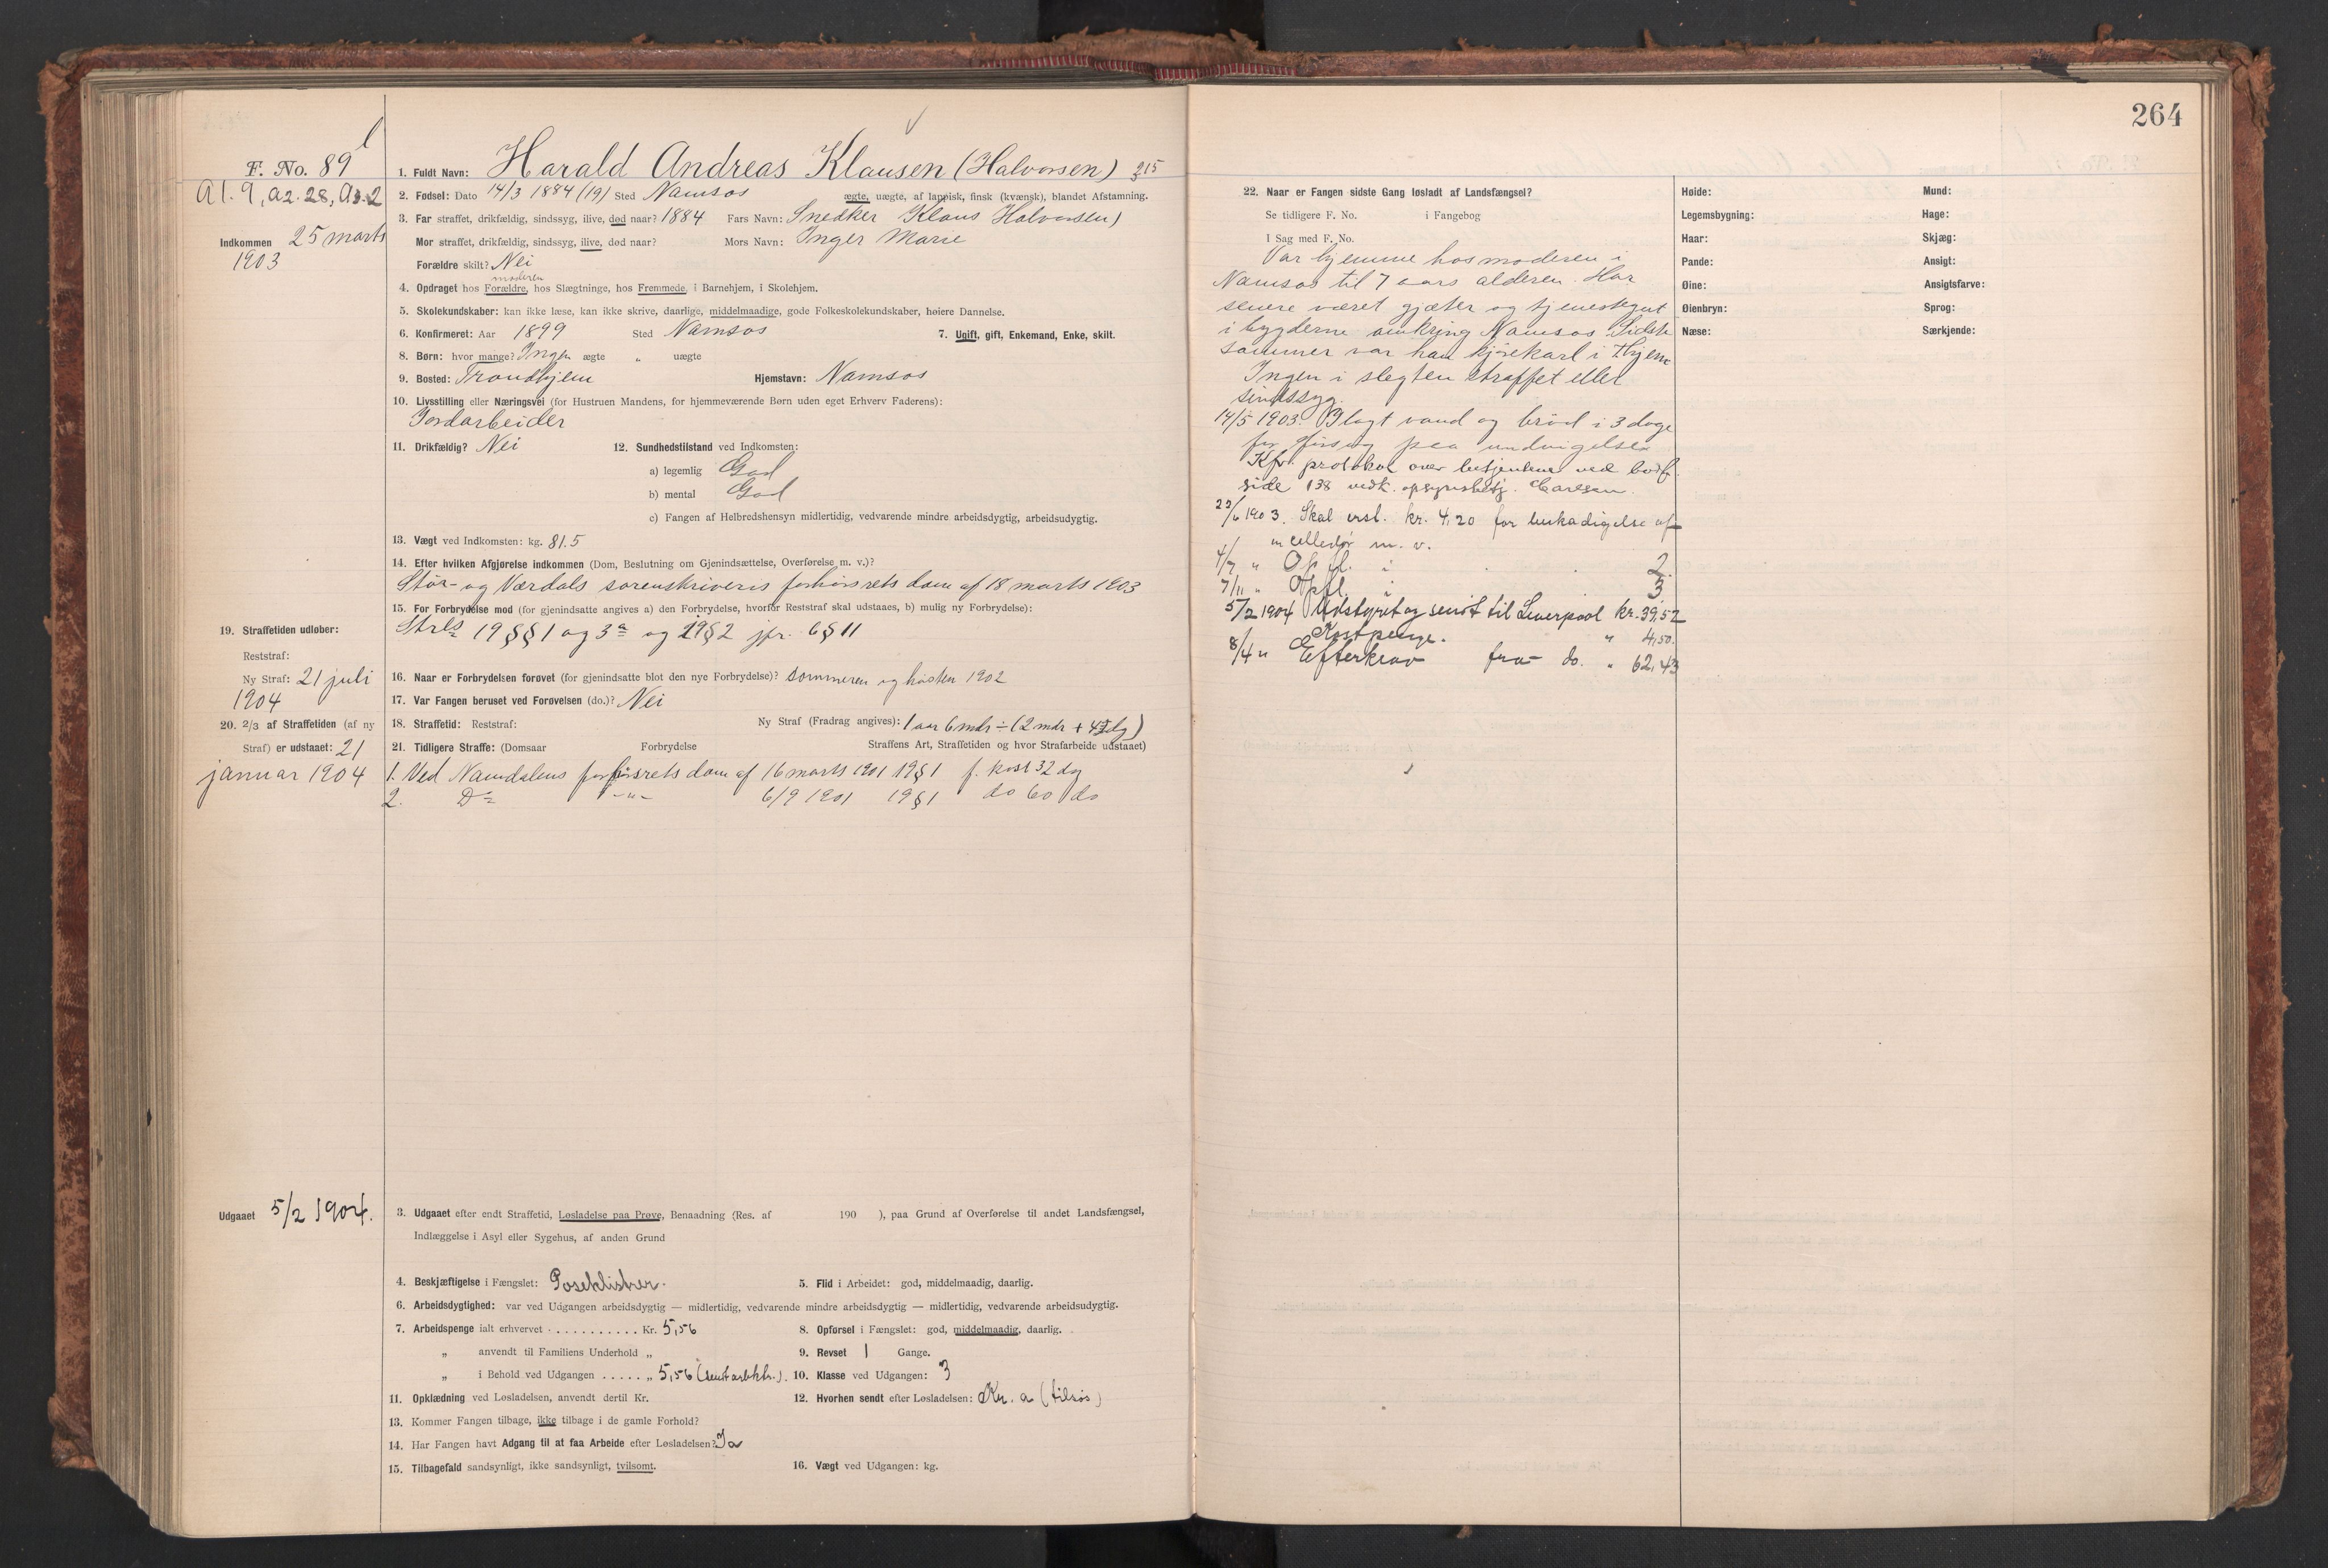 264
F. No. 89
A1. 9, A2. 28, A3. 2
Indkommen 25 marts
1903
1. Fuldt Navn: Harald Andreas Klausen (Halvorsen) 215
2. Fødsel: Dato 14/3 1884 (19) Sted Namsos ægte, uægte, af lappisk, finsk (kvænsk), blandet Afstamning.
3. Far straffet, drikfældig, sindssyg, ilive, død naar? 1884 Fars Navn: Snedker Klaus Halvorsen)
Mor straffet, drikfældig, sindssyg, ilive, død naar? Mors Navn: Inger Marie
Forældre skilt? Nei
moderen
4. Opdraget hos Forældre, hos Slægtninge, hos Fremmede, i Barnehjem, i Skolehjem.
5. Skolekundskaber: kan ikke læse, kan ikke skrive, daarlige, middelmaadige, gode Folkeskolekundskaber, høiere Dannelse.
6. Konfirmeret: Aar 1899 Sted Namsos 7. Ugift, gift, Enkemand, Enke, skilt.
8. Børn: hvor mange? Ingen ægte „ uægte
9. Bosted: Trondhjem Hjemstavn: Namsos
10. Livsstilling eller Næringsvei (for Hustruen Mandens, for hjemmeværende Børn uden eget Erhverv Faderens):
Jordarbeider
11. Drikfældig? Nei 12. Sundhedstilstand ved Indkomsten:
a) legemlig God
b) mental God
c) Fangen af Helbredshensyn midlertidig, vedvarende mindre arbeidsdygtig, arbeidsudygtig.
13. Vægt ved Indkomsten: kg. 81.5
14. Efter hvilken Afgjørelse indkommen (Dom, Beslutning om Gjenindsættelse, Overførelse m. v.)?
Stør- og Værdals sorenskriveris forhørsrets dom af 18 marts 1903
15. For Forbrydelse mod (for gjenindsatte angives a) den Forbrydelse, hvorfor Reststraf skal udstaaes, b) mulig ny Forbrydelse):
Strls 19 §§ 1 og 3a og 19 § 2 jfr. 6 § 11
19. Straffetiden udløber:
Reststraf:
Ny Straf: 21 juli
1904
16. Naar er Forbrydelsen forøvet (for gjenindsatte blot den nye Forbrydelse)? Sommeren og høsten 1902
17. Var Fangen beruset ved Forøvelsen (do.)? Nei
20. 2/3 af Straffetiden (af ny
Straf) er udstaaet: 21
januar 1904
18. Straffetid: Reststraf: Ny Straf (Fradrag angives): 1 aar 6 mdr ÷ (2 mdr +
21. Tidligere Straffe: (Domsaar Forbrydelse Straffens Art, Straffetiden og hvor Strafarbeide udstaaet)
1. Ved Namdalens forhørsrets dom af 16 marts 1901 19 § 1 f. kost 32 dg
2. Do -"- 6/9 1901 19 § 1 do 60 do
Udgaaet 5/2 1904.
3. Udgaaet efter endt Straffetid, Løsladelse paa Prøve, Benaadning (Res. af 190 ), paa Grund af Overførelse til andet Landsfængsel,
Indlæggelse i Asyl eller Sygehus, af anden Grund
4. Beskjæftigelse i Fængslet: Poseklistrer. 5. Flid i Arbeidet: god, middelmaadig, daarlig.
6. Arbeidsdygtighed: var ved Udgangen arbeidsdygtig — midlertidig, vedvarende mindre arbeidsdygtig — midlertidig, vedvarende arbeidsudygtig.
7. Arbeidspenge ialt erhvervet . . . . . . . . . . . Kr. 5,56 8. Opførsel i Fængslet: god, middelmaadig, daarlig.
„ anvendt til Familiens Underhold „ 9. Revset 1 Gange.
„ i Behold ved Udgangen . . . . . „ 5,56 (sendt 10. Klasse ved Udgangen: 3
11. Opklædning ved Løsladelsen, anvendt dertil Kr. 12. Hvorhen sendt efter Løsladelsen: Kr. a (tilsøs)
13. Kommer Fangen tilbage, ikke tilbage i de gamle Forhold?
14. Har Fangen havt Adgang til at faa Arbeide efter Løsladelsen? Ja
15. Tilbagefald sandsynligt, ikke sandsynligt, tvilsomt. 16. Vægt ved Udgangen: kg.
22. Naar er Fangen sidste Gang løsladt af Landsfængsel?
Se tidligere F. No. i Fangebog
I Sag med F. No.
Var hjemme hos moderen i
Namsos til 7 aars alderen. Har
senere været gjæter og tjenestegut
i bygderne omkring Namsos. Sidste
sommer var han kjørekarl i Thjem
Ingen i slegten straffet eller
sindssyg.
14/5 1903. Ilagt vand og brød i 3 dage
for forsøg paa undvigelse
Kfr. protokol over betjentene ved bodsf.
side 138 vedk. opsynsbetj. Carlsen.
22/6 1903. Skal erst. kr. 4,20 for beskadigelse af
en celledør m. v.
4/7 " Opfl. i 2.
7/11 " Opfl. i 3
5/2 1904 Udstyret og sendt til Liverpool kr. 39,52
Kostpenge. " 4,50.
8/4 " Efterkrav fra do. " 62,43
Høide: Mund:
Legemsbygning: Hage:
Haar: Skjæg:
Pande: Ansigt:
Øine: Ansigtsfarve:
Øienbryn: Sprog:
Næse: Særkjende: